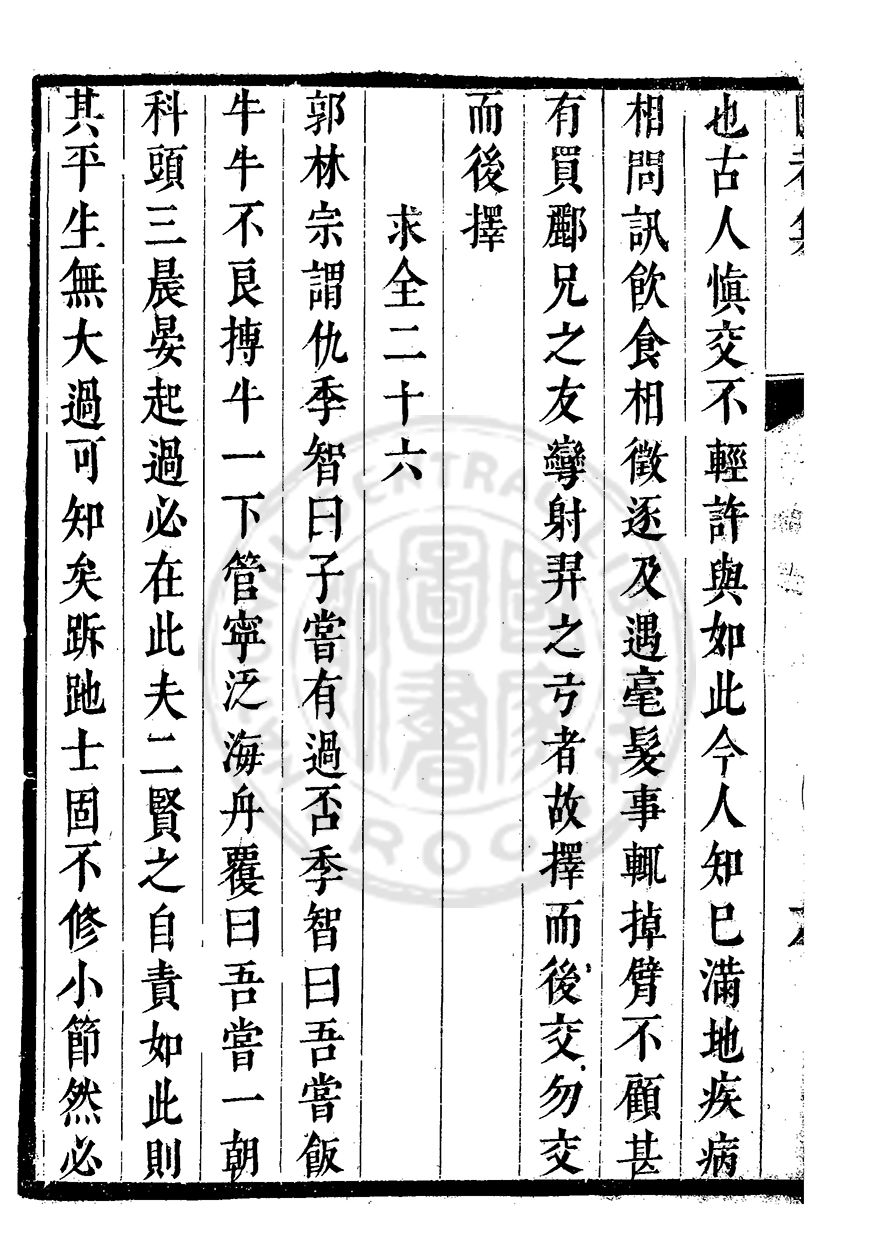 也古人慎交不輕許與如此今人知巳滿地疾病
相問訊飲食相徵逐及遇毫髮事輒掉臂不顧甚
有買酈兄之友彎射羿之弓者故擇而後交勿交
而後擇
求全二十六
郭林宗謂仇季智曰子嘗有過否季智曰吾嘗飯
牛牛不良搏牛一下管寧泛海舟覆曰吾嘗一朝
科頭三晨晏起過必在此夫二賢之自責如此則
其平生無大過可知矣跅跪士固不修小節然必